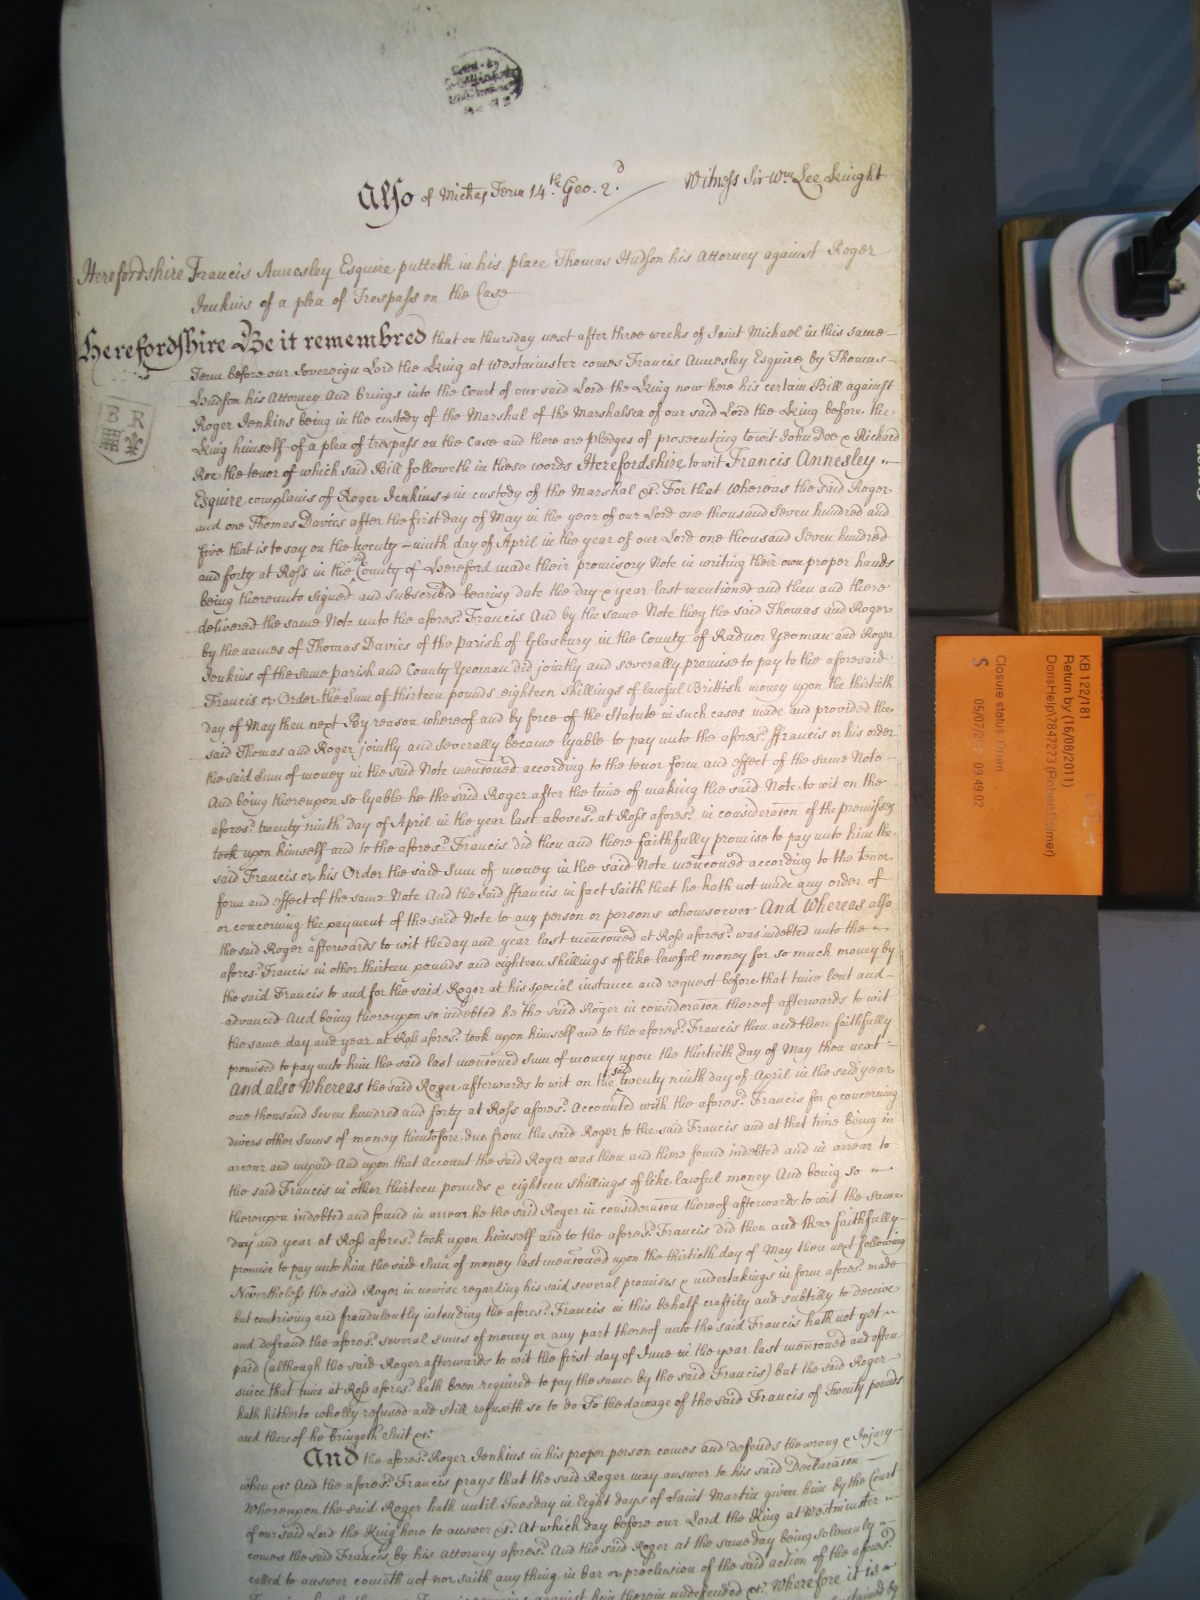 Also of Mich'as Term 14th. Geo. 2.d Witness Sir Wm Lee Knight
Herefordshire Francis Annesley Esquire putteth in his place Thomas Hudson his Attorney against Roger
Jenkins of a plea of Trespass on the Case
Herefordshire Be it remembred that on thursday next after three weeks of Saint Michael in this same
Term before our Sovereign Lord the King at Westminster comes Francis Annesley Esquire by Thomas
Hudson his Attorney And brings into the Court of our said Lord the King now here his certain Bill against
Roger Jenkins being in the custody of the Marshal of the Marshalsea of our said Lord the King before the
King himself of a plea of trespass on the Case and there are pledges of prosecuting to wit John Doe & Richard
Roe the tenor of which said Bill followeth in these words Herefordshire to wit Francis Annesley
Esquire complains of Roger Jenkins in custody of the Marshal &c. For that Whereas the said Roger
and one Thomas Davies after the first day of May in the year of our Lord one thousand Seven hundred and
five that is to say on the twenty ninth day of April in the year of our Lord one thousand Seven hundred
and forty at Ross in the sd County of Hereford made their promisory Note in writing their own proper hands
being thereunto signed and subscribed bearing date the day & year last mentioned and then and there
delivered the same Note unto the afores.d Francis And by the same Note they the said Thomas and Roger
by the names of Thomas Davies of the parish of Glasbury in the County of Radnor Yeoman and Roger
Jenkins of the same parish and County Yeoman did jointly and severally promise to pay to the aforesaid
Francis or Order the Sum of thirteen pounds eighteen shillings of lawful Brittish money upon the thirtieth
day of May then next By reason whereof and by force of the Statute in such cases made and provided the
said Thomas and Roger jointly and severally became lyable to pay unto the afores.d ffrancis or his order
the said Sum of money in the said Note menc̄oned according to the tenor form and effect of the same Note
And being thereupon so lyable he the said Roger after the time of making the said Note to wit on the
afores.d twenty ninth day of April in the year last aboves.d at Ross afores.d in consideration of the premisses
took upon himself and to the afores.d Francis did then and there faithfully promise to pay unto him the
said Francis or his Order the said Sum of money in the said Note menc̄oned according to the tenor
form and effect of the same Note And the said ffrancis in fact saith that he hath not made any order of
or concerning the payment of the said Note to any person or persons whomsoever And Whereas also
the said Roger afterwards to wit the day and year last menc̄oned at Ross afores.d was indebted unto the
afores.d Francis in other thirteen pounds and eighteen shillings of like lawful money for so much money by
the said Francis to and for the said Roger at his special instance and request before that time lent and
advanced And being thereupon so indebted he the said Roger in considerac̄on thereof afterwards to wit
the same day and year at Ross afores.d took upon himself and to the afores.d Francis then and there faithfully
promised to pay unto him the said last menc̄oned Sum of money upon the thirtieth day of May then next
And also Whereas the said Roger afterwards to wit on the said twenty ninth day of April in the said year
one thousand Seven hundred and forty at Ross afores.d Accounted with the afores.d Francis for & concerning
divers other Sums of money theretofore due from the said Roger to the said Francis and at that time being in
arrear and unpaid And upon that Account the said Roger was then and there found indebted and in arrear to
the said Francis in other thirteen pounds & eighteen shillings of like lawful money And being so
thereupon indebted and found in arrear he the said Roger in considerac̄on thereof afterwards to wit the same
day and year at Ross afores.d took upon himself and to the afores.d Francis did then and there faithfully
promise to pay unto him the said Sum of money last menc̄oned upon the thirtieth day of May then next following
Nevertheless the said Roger in nowise regarding his said several promises & undertakings in form afores.d made
but contriving and fraudulently intending the afores.d Francis in this behalf craftily and subtilly to deceive
and defraud the afores.d several sums of money or any part thereof unto the said Francis hath not yet
paid (although the said Roger afterwards to wit the first day of June in the year last menc̄oned and often
since that time at Ross afores.d hath been required to pay the same by the said Francis) but the said Roger
hath hitherto wholly refused and still refuseth so to do To the damage of the said Francis of Twenty pounds
and thereof he bringeth Suit &c.
And the afores.d Roger Jenkins in his proper person comes and defends the wrong & Injury
when &c. And the afores.d Francis prays that the said Roger may answer to his said Declarac̄on
Whereupon the said Roger hath until Tuesday in Eight days of Saint Martin given him by the Court
of our said Lord the King here to answer &c. At which day before our Lord the King at Westminster
comes the said Francis by his Attorney afores.d And the said Roger at the same day being solemnly
called to answer cometh not nor saith any thing in bar or preclusion of the said action of the afores.d
against him therein undefended &c. Wherefore it is
sustained by
B R
KB 122/181
Return by (16/08/2011)
DorisHelp\784727
Closure status: Open
05/07/ 09:49:02
S